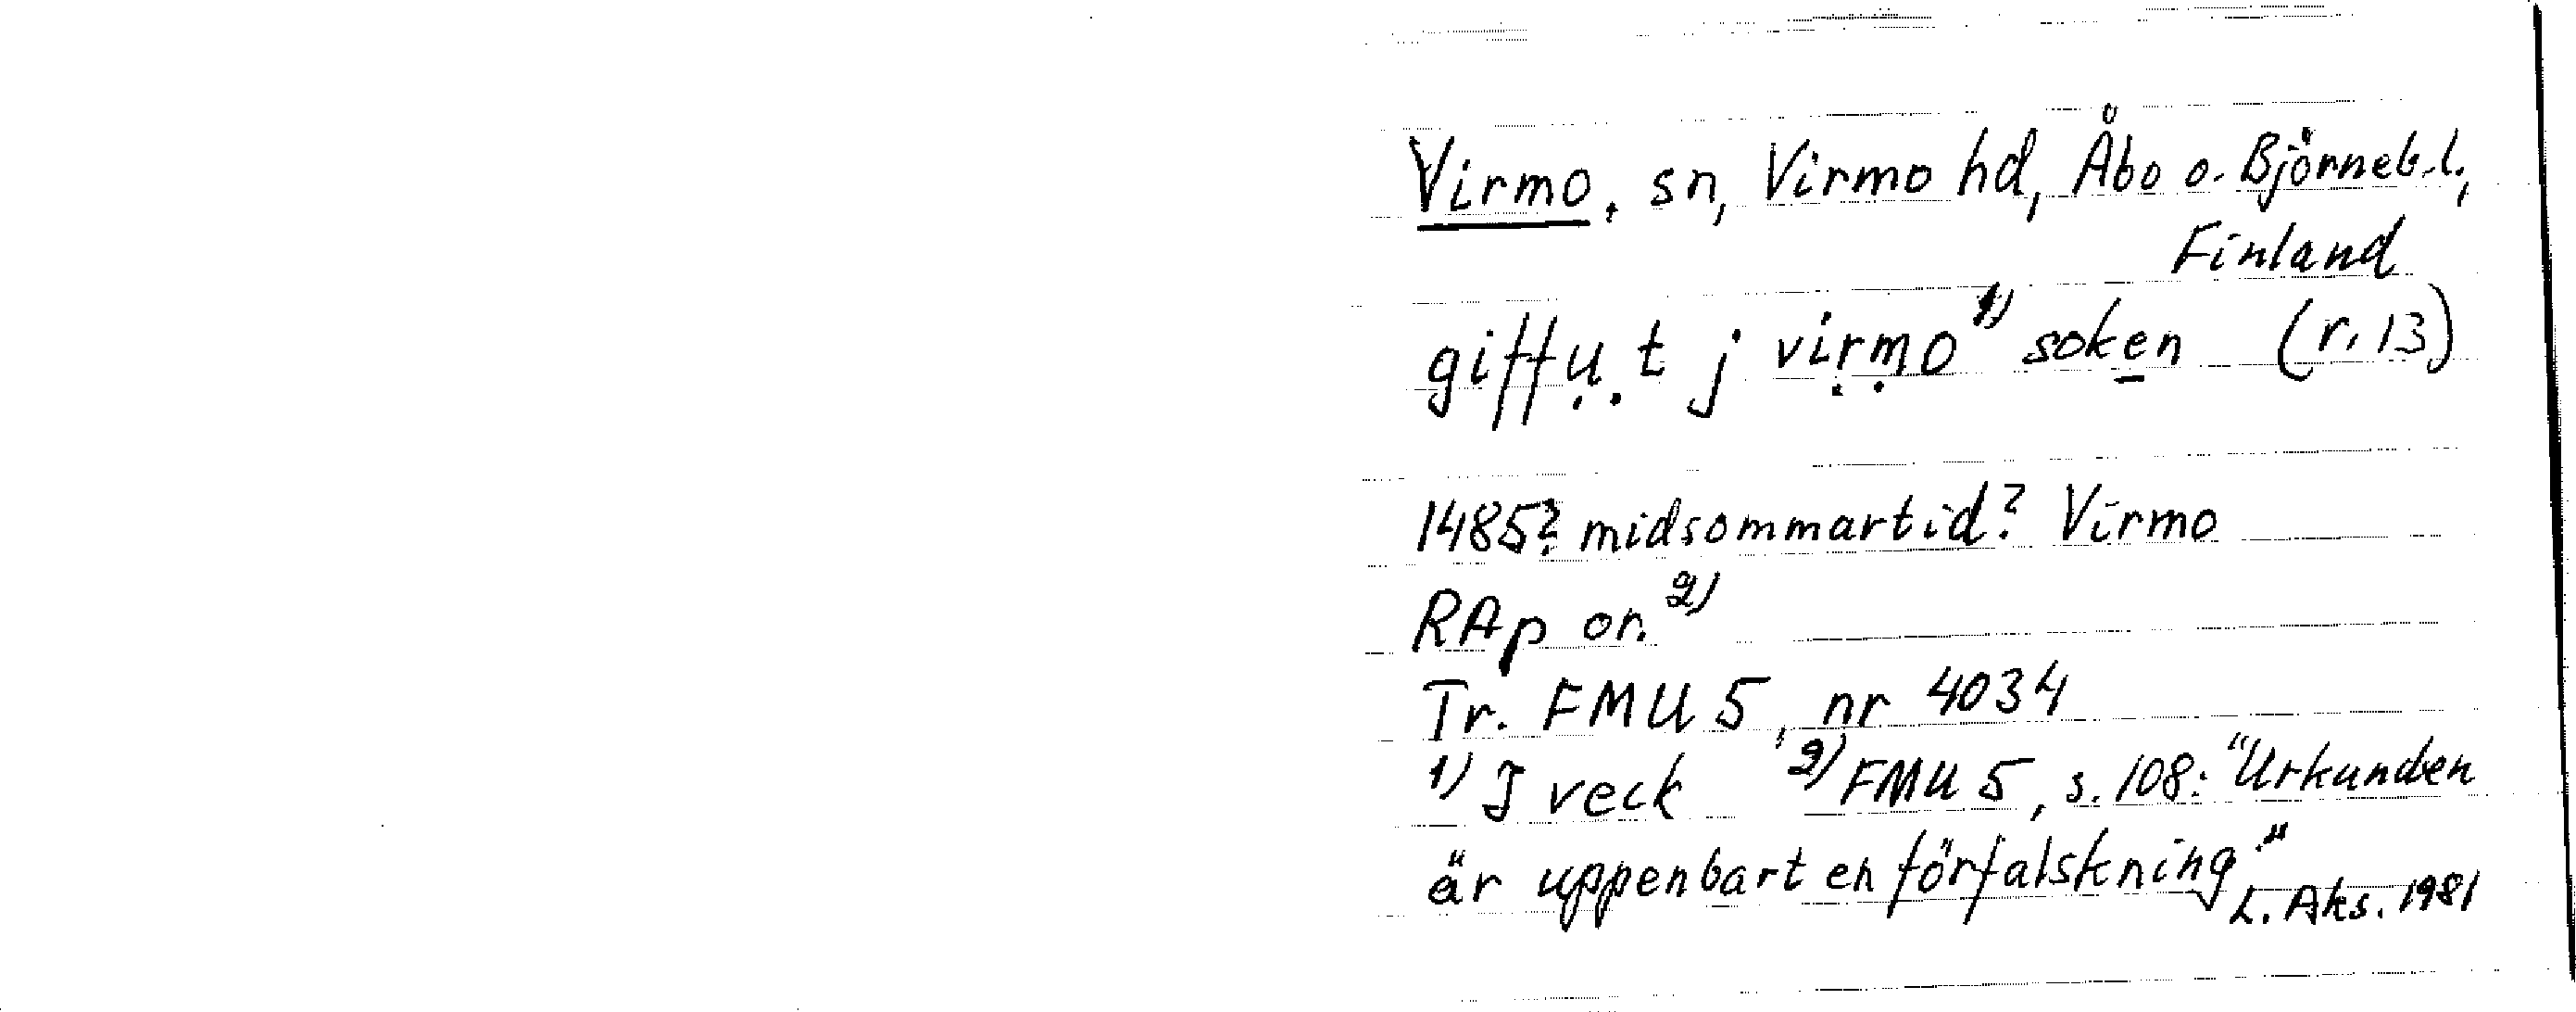 Virmo, sn, Virmo hd, Åbo o. Björneb. l.,
Finland
giffụ.t j viṛṃo¹⁾ soke̲n (r. 13)
1485? midsommartid? Virmo
RAp or. ²⁾
Tr. FMU 5, nr 4034
¹⁾ I veck ²⁾ FMU 5, s. 108: "Urkunden
är uppenbart en förfalskning."
L. Aks. 1981